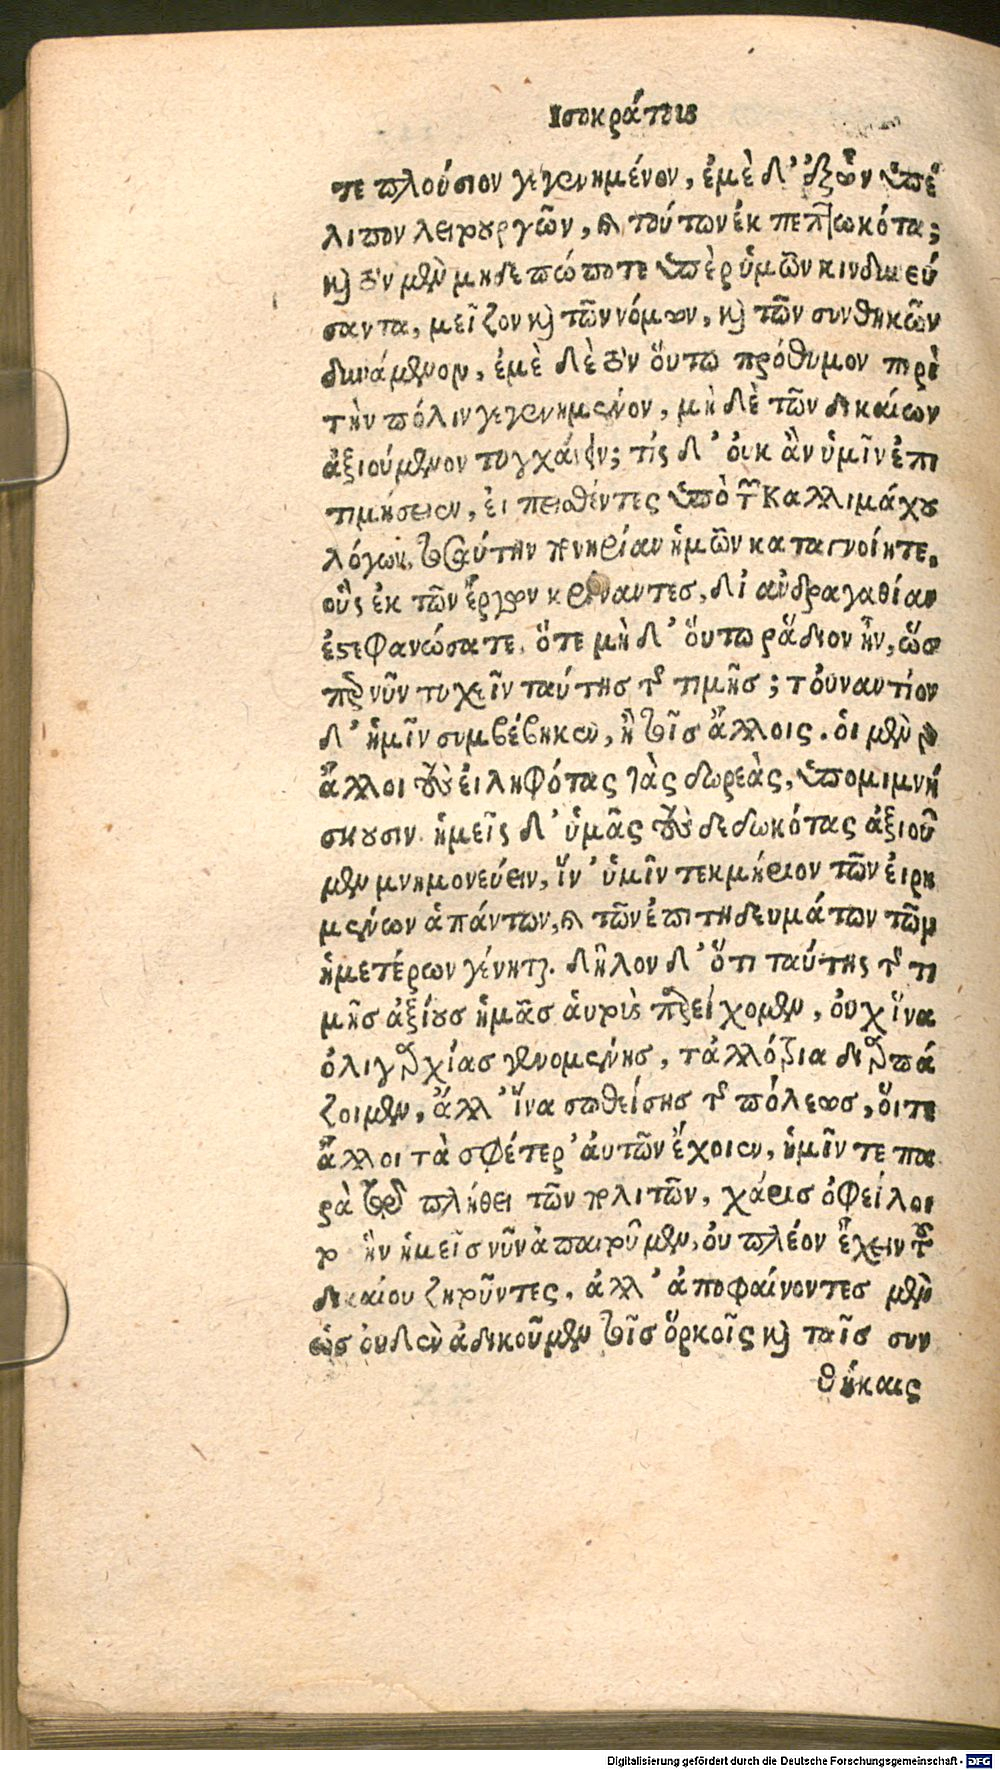 Ισοκράτους
τε πλούσιον γεγενημένον, ἐμὲ δ' ἐξ ὧν ὑπέ
λιπον λειτουργῶν, καὶ τούτων ἐκ πεπτωκότα;
καὶ τὸν μὲν μηδε πώποτε ὑπὲρ ὑμῶν κινδυνεύ
σαντα, μεῖζον καὶ τῶν νόμων, καὶ τῶν συνθηκῶν
δυνάμενον, ἐμὲ δὲ τὸν ὅυτω πρόθυμον περὶ
τὴν πόλιν γεγενημένον, μὴ δὲ τῶν δικαίων
ἀξιούμενον τυγχάνειν; τίς δ' ὀυκ ἂν ὑμῖν ἐπι
τιμήσειεν, ἐι πεισθέντες ὑπὸ τῶν Καλλιμάχου
λόγων, τοσαύτην πονηρίαν ἡμῶν καταγνοίητε,
οὓς ἐκ τῶν ἔργων κρίναντεσ, δἰ ἀνδραγαθίαν
ἐστεφανώσατε, ὅτε μὴ δ' ὅυτω ῥᾴδιον ἦν, ὥσ
περ νῦν τυχεῖν ταύτησ τῆς τιμῆσ; τὀυναντίον
δ' ἡμῖν συμβέβηκεν, ἢ τοῖσ ἄλλοις. ὁι μὲν γὰρ
ἄλλοι τοὺς ἐιληφότας τὰς δωρεὰς, ὑπομιμνή
σκουσιν. ἡμεῖς δ' ὑμᾶς τοὺς δεδωκότας ἀξιοῦ
μεν μνημονεύειν, ἵν' ὑμῖν τεκμήριον τῶν ἐιρη
μένων ἁπάντων, καὶ τῶν ἐπιτηδευμάτων τῶν
ἡμετέρων γένηται. δῆλον δ' ὅτι ταύτης τῆς τι
μῆσ ἀξίουσ ἡμᾶσ ἁυτοὺς παρείχομεν, ὀυχ ἵνα
ὀλιγαρχίασ γενομένησ, τἀλλότρια διαρπά
ζοιμεν, ἀλλ' ἵνα σωθείσησ τῆς πόλεωσ, ὅιτε
ἄλλοι τὰ σφέτερ' ἁυτῶν ἔχοιεν, ἡμῖν τε πα
ρὰ τῷ πλήθει τῶν πολιτῶν, χάρισ ὀφείλοι
το ἣν ἡμεῖσ νῦν ἀπαιτοῦμεν, ὀυ πλέον ἔχειν τοῦ
δικαίου ζητοῦντες, ἀλλ' ἀποφαίνοντεσ μὲν
ὡσ ὀυδὲν ἀδικοῦμεν τοῖσ ὅρκοῖς καὶ ταῖσ συν
θήκαις
Digitalisierung gefördert durch die Deutsche Forschungsgemeinschaft - DFG